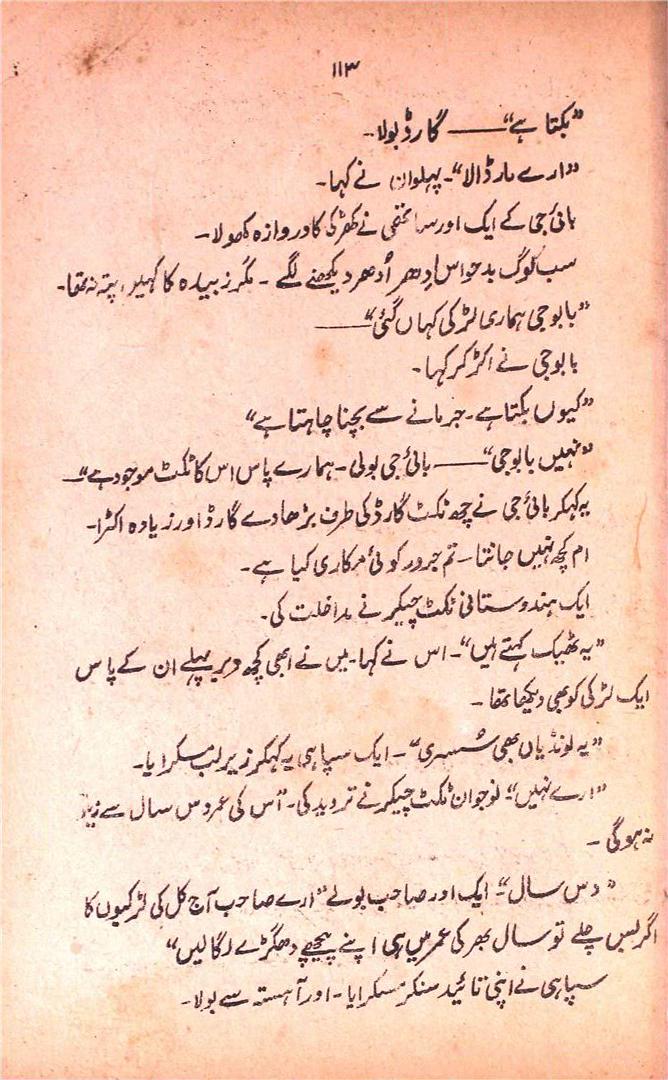 ۱۱۳
”بکتا ہے“ —— گارڈ بولا۔
”ارے مار ڈالا“۔ پہلوان نے کہا۔
بائی جی کے ایک اور ساتھی نے کھڑکی کا دروازہ کھولا۔
سب لوگ بدحواس اِدھر اُدھر دیکھنے لگے ۔ مگر زبیدہ کا کہیں پتہ نہ تھا۔
”بابوجی ہماری لڑکی کہاں گئی“ ——
بابوجی نے اکڑ کر کہا۔
”کیوں بکتا ہے۔ جرمانے سے بچنا چاہتا ہے“
”نہیں بابوجی“ —— بائی جی بولی۔ ہمارے پاس اس کا ٹکٹ موجود ہے“ —
یہ کہکر بائی جی نے چھ ٹکٹ گارڈ کی طرف بڑھا دے گارڈ اور زیادہ اکڑا۔
ام کچھ نہیں جانتا۔ تم جرور کوئی مکاری کیا ہے۔
ایک ہندوستانی ٹکٹ چیکر نے مداخلت کی۔
”یہ ٹھیک کہتے ہیں“۔ اس نے کہا۔ میں نے ابھی کچھ دیر پہلے ان کے پاس
ایک لڑکی کو بھی دیکھا تھا۔
”یہ لونڈیاں بھی سُسری“۔ ایک سپاہی یہ کہکر زیرلب مسکرایا۔
”ارے نہیں“۔ نوجوان ٹکٹ چیکر نے تردید کی۔ اُس کی عمر دس سال سے
نہ ہوگی ۔
”دس سال“۔ ایک اور صاحب بولے ”ارے صاحب آج کل کی لڑکیوں کا
اگر بس چلے تو سال بھر کی عمر میں ہی اپنے پیچھے دھگڑے لگالیں“
سپاہی نے اپنی تائید سنکر مسکرایا۔ اور آہستہ سے بولا۔